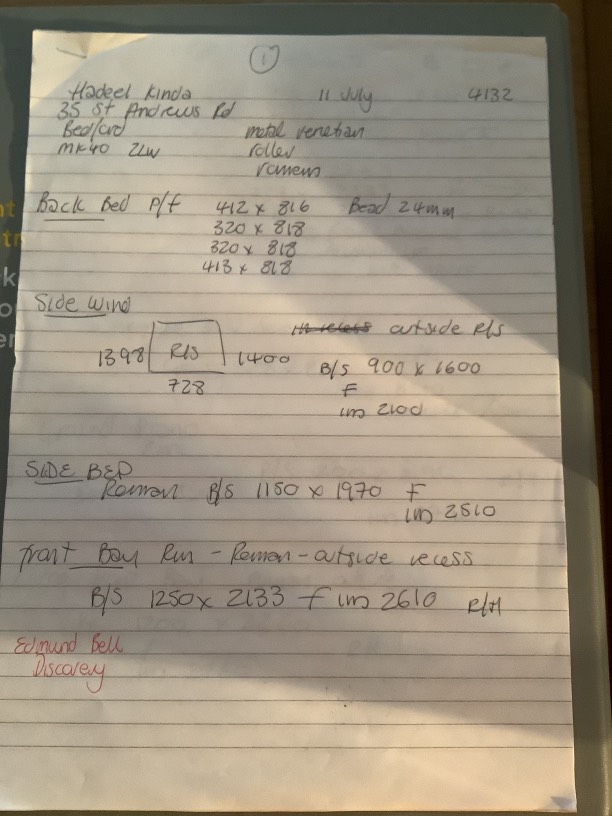 1
Hadeel Kinda 11 July 4132
35 St Andrews Rd
Bedford metal venetian
MK40 2LW roller
romans
Back Bed P/f 412 x 816 Bead 24mm
320 x 818
320 x 818
413 x 818
Side Wind
in recess outside R/s
1398 R/s 1400 B/s 900 x 1600
728 F
lm 2100
SIDE BED
Roman B/s 1150 x 1970 F
lm 2510
front Bay Rm - Roman - outside recess
B/s 1250 x 2133 F lm 2610 R/H
Edmund Bell
Discovery